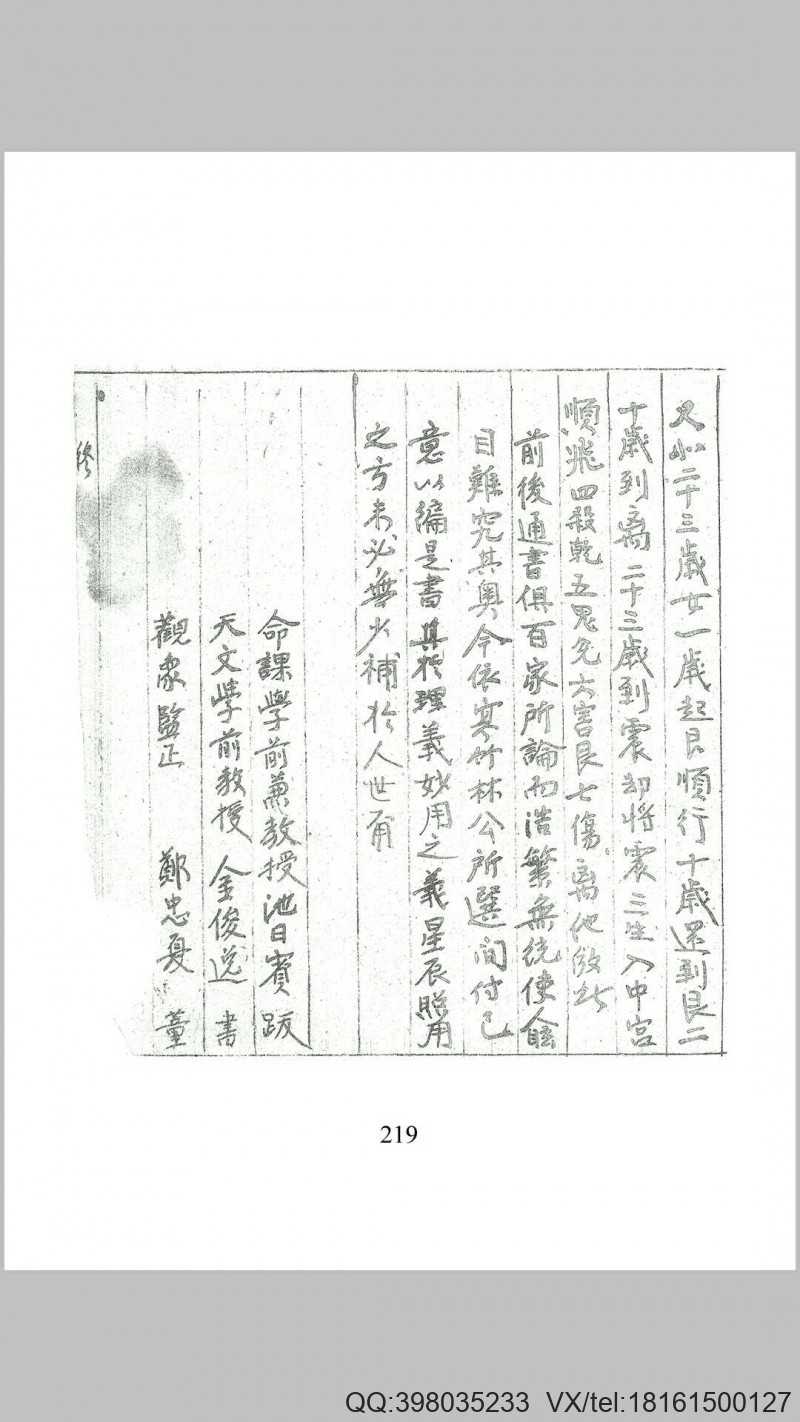 又如二十三歲女一歲起艮順行十歲還到艮二
十歲到离二十三歲到震却將震三生入中宮
順飛四殺乾五鬼兌六害艮七傷离他倣此
前後通書俱百家所論而浩繁無統使人眩
目難究其奧今依寒竹林公所選間付己
意以編是書其於理義妙用之義星辰照用
之方未必無少補於人世甭
命課學前兼教授池日賓跋
天文學前教授金俊 書
觀象監正 鄭忠夏 董
終
219
QQ:398035233 VX/tel:18161500127